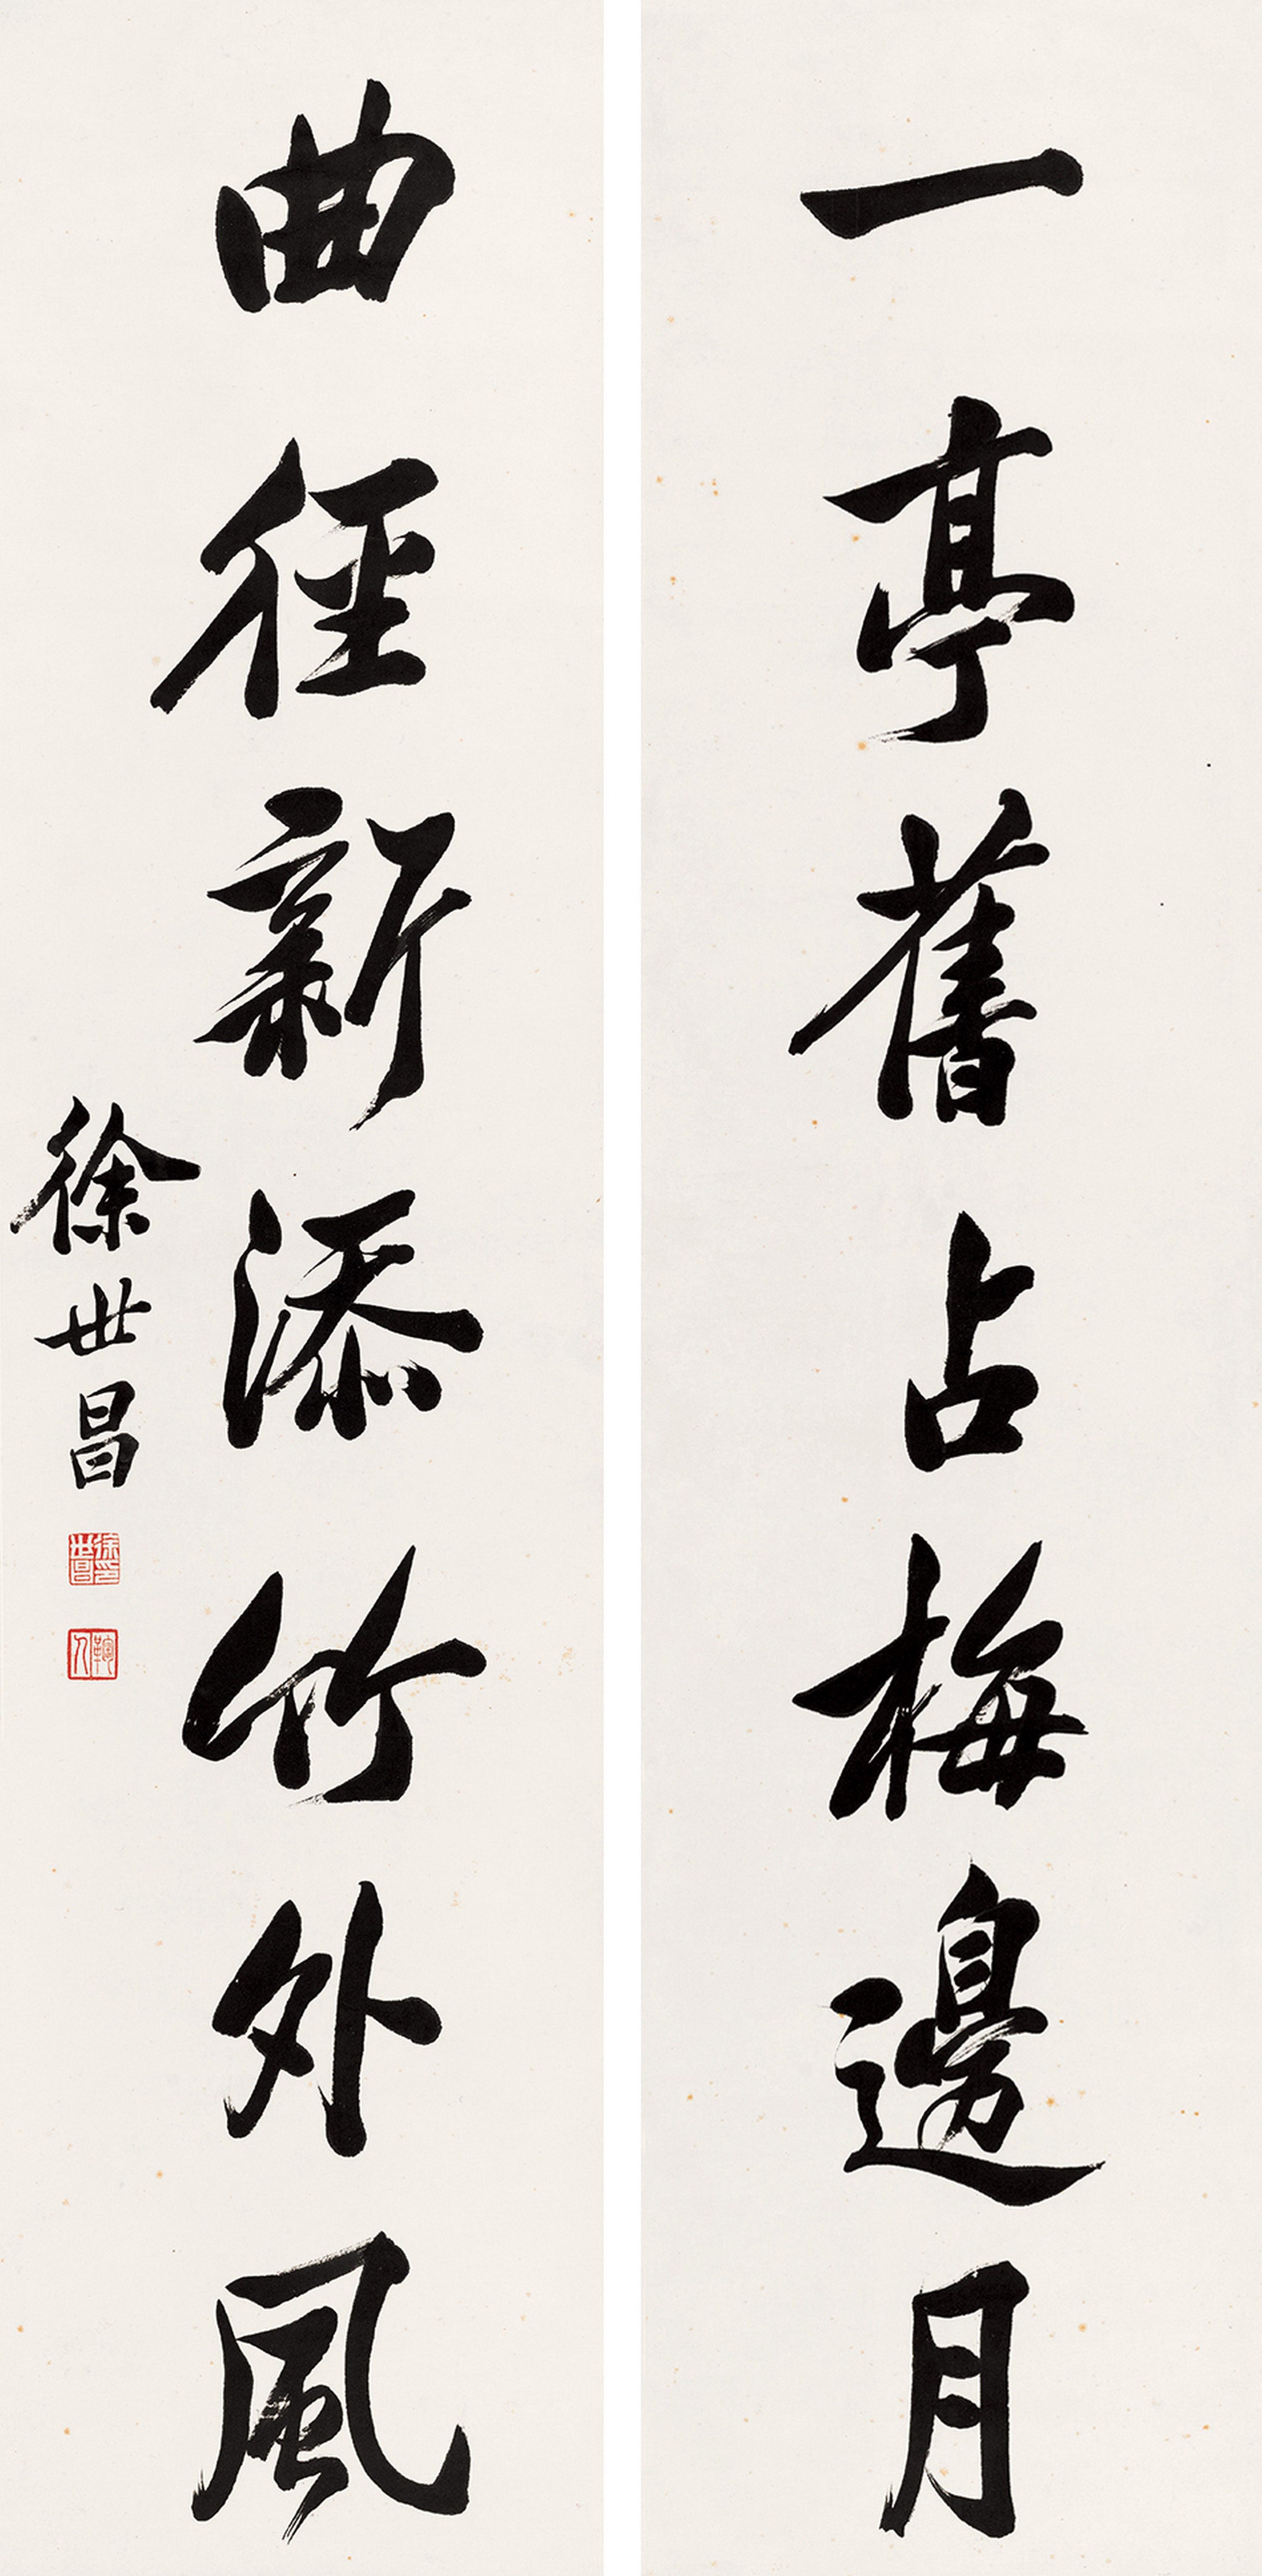 一亭舊占梅邊月
曲徑新添竹外風
徐世昌
徐世昌印
鞠人